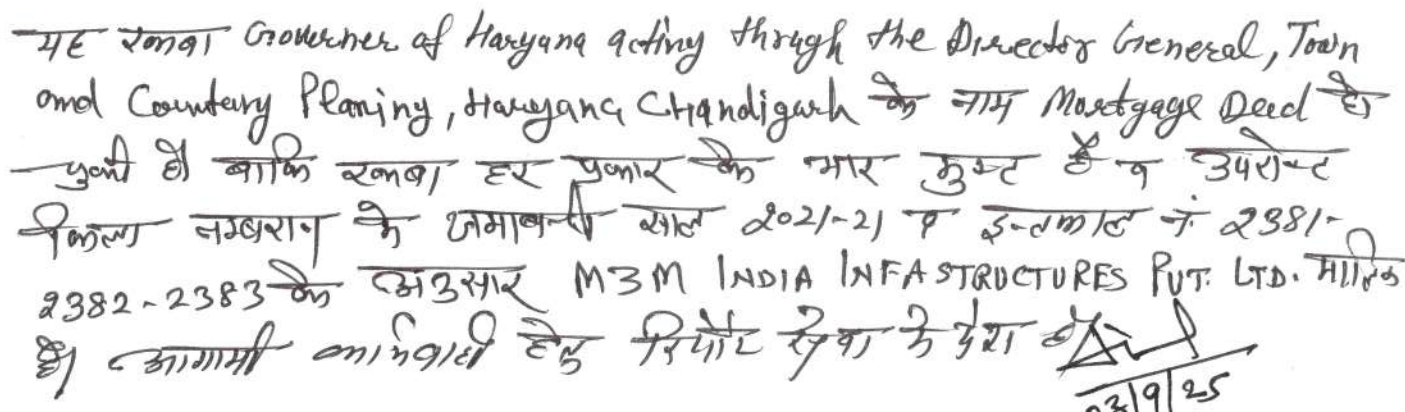 यह रकबा Governer of Haryana acting through the Director General, Town
and Country Planing, Haryana Chandigarh के नाम Mortgage Deed हो
चुकी है। बाकि रकबा हर प्रकार के भार मुक्त है व उपरोक्त
किला नम्बरान के जमाबन्दी साल 2021-21 व इन्तकाल नं. 2381-
2382-2383 के अनुसार M3M INDIA INFASTRUCTURES PVT. LTD. मालिक
है। आगामी कार्यवाही हेतु रिपोर्ट सेवा में पेश है।
23/9/25